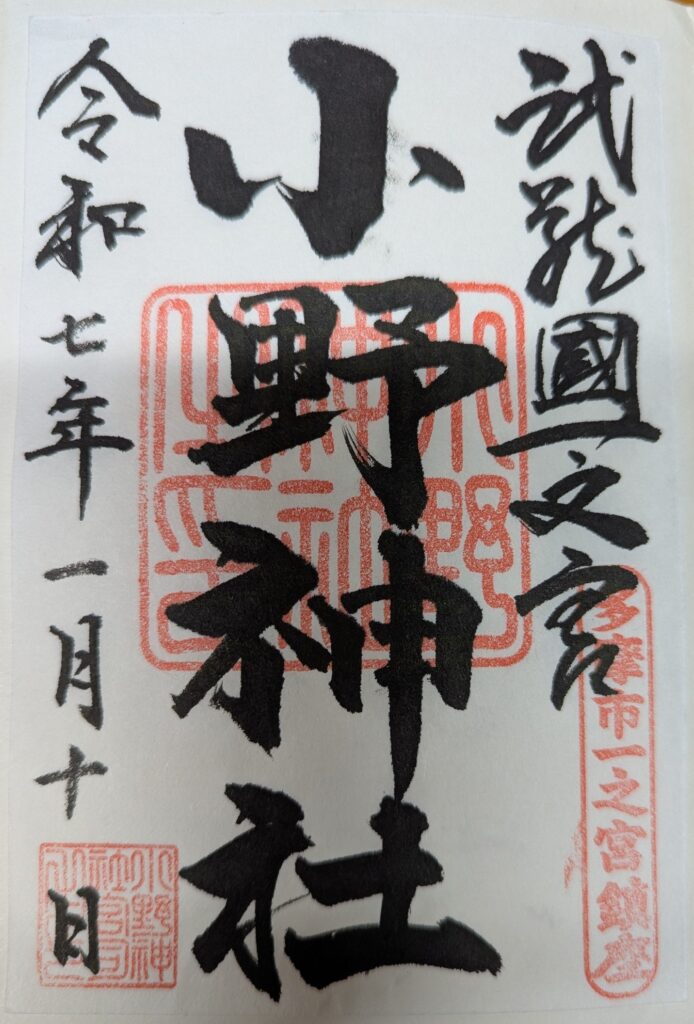 武蔵國一之宮
多摩市一之宮鎮座
小野神社
小野
神社
之印
令和七年一月十日
小野神
社宮司